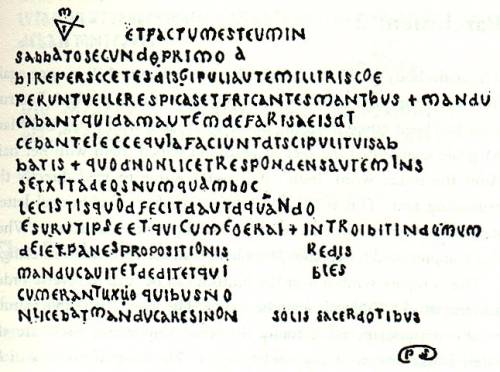 ETFACTUMESTEUMIN
SABBATOSECUNDOPRIMO A
BIREPERSCCETESDISGIPULIAUTEMILLIRISCOE
PERUNTVELLERESPICASETFRICANTESMANTBUS + MANDU
CABANTQUIDAMAUTEMDEFARISAEISDT
CEBANTEIECCEQUIAFACIUNTDTSCIPULITUISAB
BATIS + QUODNONLICETRESPONDENSAUTEMINS
SETXTTADEOSNUMQUAMHOC
LECISTISQUODFECITDAUTDQUANDO
ESURUTIPSEETQUICUMEOERAI + INTROIBITINDQMUM
DEIETPANESPROPOSITIONIS REDIS
MANDUCAUITETDEDITETQUI BLES
CUMERANTUXUO QUIBUSNO
NLICEBATMANDUCARESINON SOLIS SACERDOTIBUS
PS